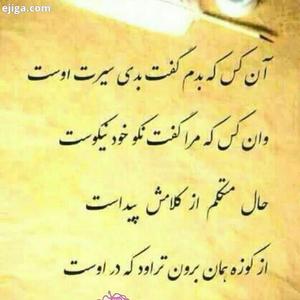 ejiga.com
آن کس که بدم گفت بدی سیرت اوست
وان کس که مرا گفت نکو خود نیکوست
حال متکلم از کلامش پیداست
از کوزه همان برون تراود که در اوست